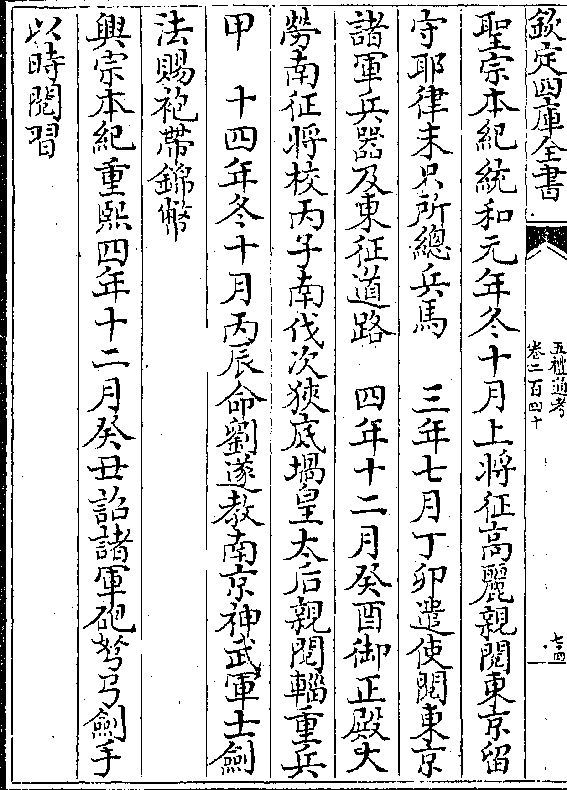 欽定四庫全書
五禮通考
卷二百四十
七四
聖宗本紀統和元年冬十月上將征高麗親閱東京留
守耶律末只所總兵馬　三年七月丁卯遣使閱東京
諸軍兵器及東征道路　四年十二月癸酉御正殿大
勞南征將校丙子南伐次狹底堝皇太后親閱輜重兵
甲　十四年冬十月丙辰命劉遂教南京神武軍士劍
法賜袍帶錦幣
興宗本紀重熙四年十二月癸丑詔諸軍砲弩弓劍手
以時閱習